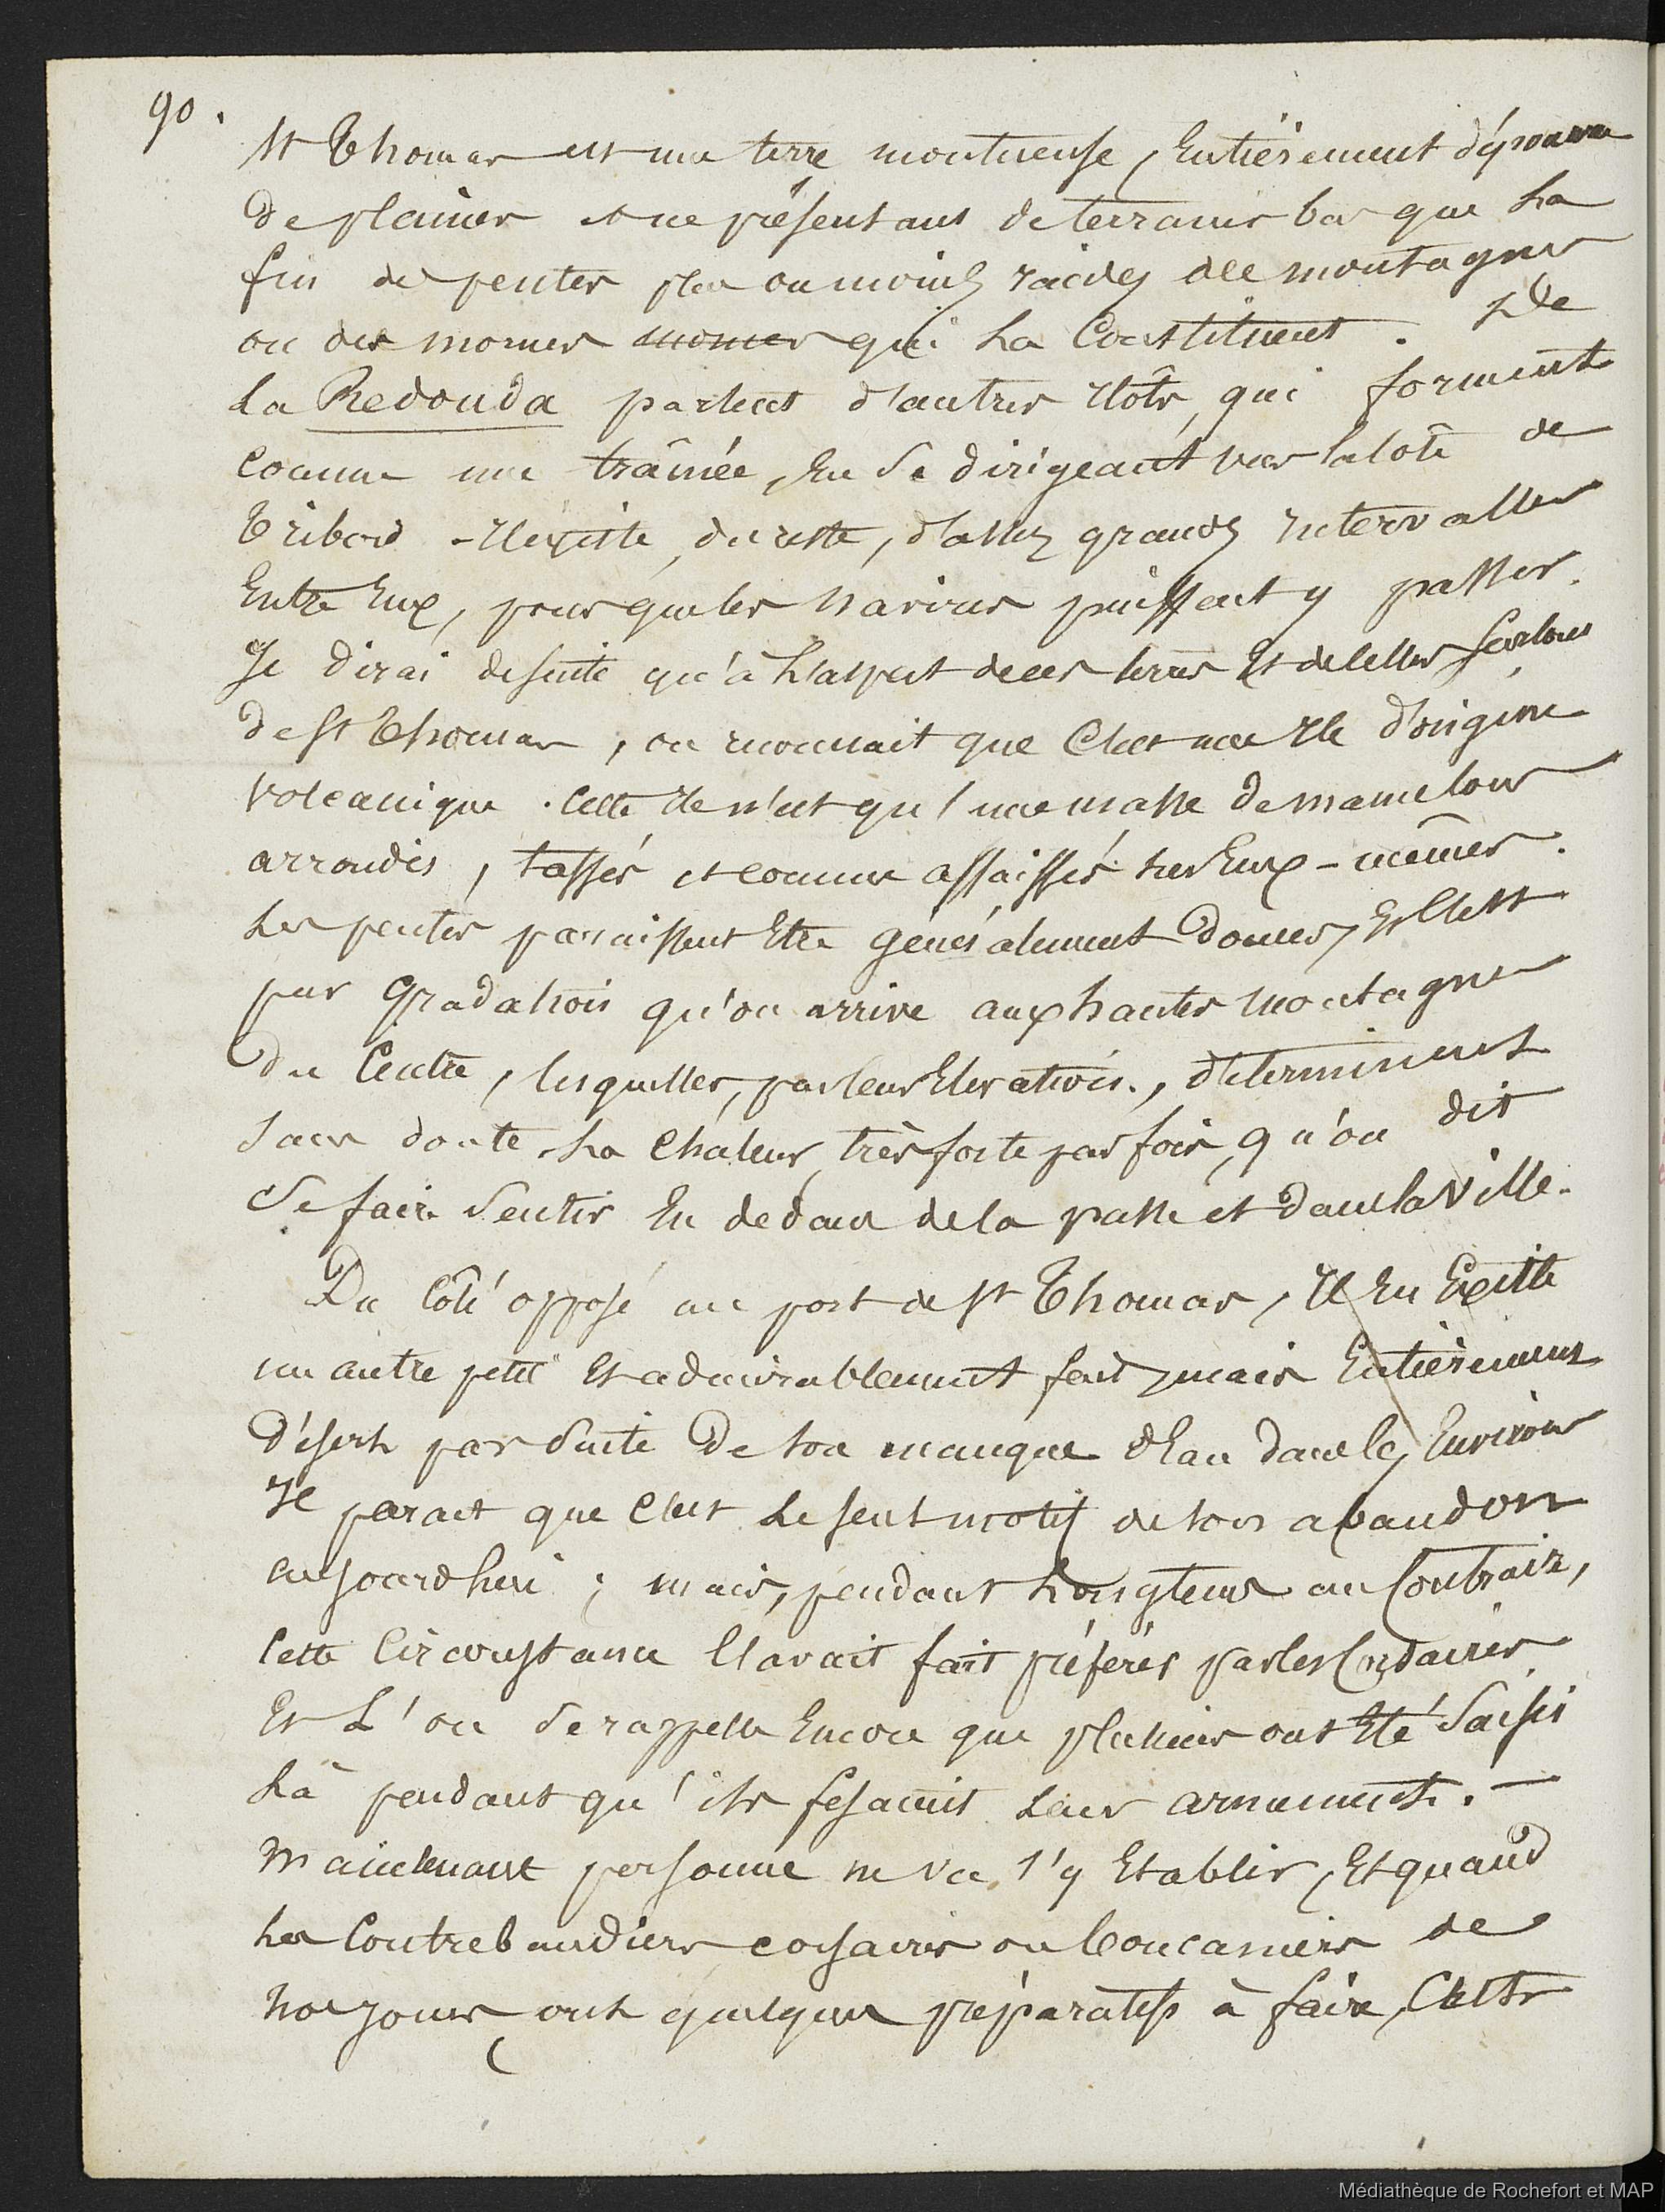 90.
St Thomas est une terre montueuse, Entièrement dépourvue
de plaines et ne présentant de terrains bas que La
fin de pentes plus ou moins raides des montagnes
ou des mornes mornes qui La Constituent. De
La Redonda partent d'autres Ilôts, qui forment
comme une traînée, En Se dirigeant vers la Côte de
Tribord. Il existe, du reste, d'assez grands Intervalles
Entre Eux, pour que les Navires puissent y passer.
Je dirai de suite qu'à L'aspect de ces terres Et de celles surtout
de St Thomas, on reconnait que C'est une Ile d'origine
volcanique. Cette Ile n'est qu'une masse de mamelons
arrondis, tassés et comme affaissés sur Eux-mêmes.
Les pentes paraissent Etre généralement douces, Et C'est
par Gradation qu'on arrive aux hautes montagnes
du Centre, lesquelles, par leur Elevation, déterminent
Sans doute La Chaleur, très forte parfois, qu'on dit
Se faire Sentir En dedans de la passe et dans la Ville.
Du Côté opposé au port de St Thomas, Il En Existe
un autre petit Et admirablement fait, mais Entièrement
désert par Suite de son manque d'Eau dans les Environs
Il parait que C'est Le seul motif de son abandon
aujourd'hui; mais, pendant Longtems au Contraire,
Cette Circonstance l'avait fait préférer par les Corsaires
Et L'on Se rappelle Encore que plusieurs ont Eté Saisis
Là pendant qu'ils fesaient Leur armement. —
Maintenant personne ne va s'y Etablir, Et quand
Les Contrebandiers, corsaires ou boucaniers de
Nos jours ont quelques préparatifs à faire, C'est